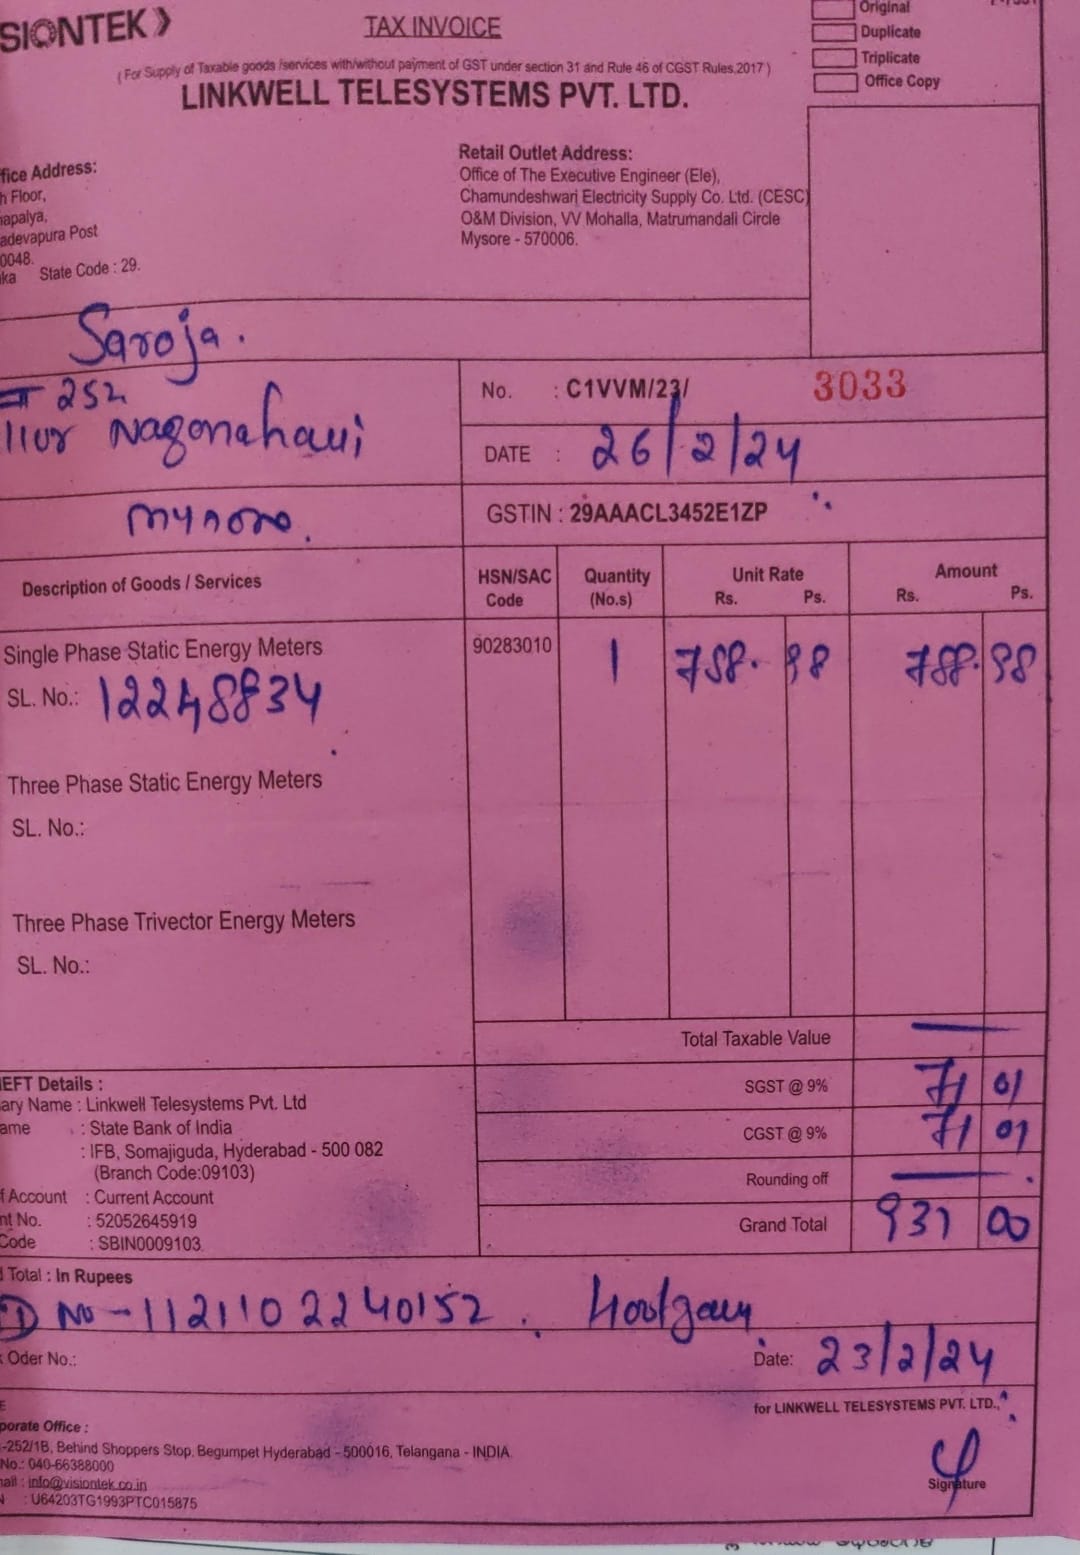 SIONTEK
TAX INVOICE
(For Supply of Taxable goods /services with/without payment of GST under section 31 and Rule 46 of CGST Rules,2017)
LINKWELL TELESYSTEMS PVT. LTD.
Original
Duplicate
Triplicate
Office Copy
fice Address:
h Floor,
apalya,
adevapura Post
0048.
ka State Code : 29.
Retail Outlet Address:
Office of The Executive Engineer (Ele),
Chamundeshwari Electricity Supply Co. Ltd. (CESC)
O&M Division, VV Mohalla, Matrumandali Circle
Mysore - 570006.
Saroja.
252
No. : C1VVM/23/ 3033
DATE : 26/2/24
GSTIN : 29AAACL3452E1ZP
Description of Goods / Services
HSN/SAC Code
Quantity (No.s)
Unit Rate
Rs. Ps.
Amount
Rs. Ps.
Single Phase Static Energy Meters 90283010 1 788. 98 788. 98
SL. No.: 12248834
Three Phase Static Energy Meters
SL. No.:
Three Phase Trivector Energy Meters
SL. No.:
Total Taxable Value
SGST @ 9% 71 01
CGST @ 9% 71 01
Rounding off
Grand Total 931 00
EFT Details :
ary Name : Linkwell Telesystems Pvt. Ltd
ame : State Bank of India
: IFB, Somajiguda, Hyderabad - 500 082
(Branch Code:09103)
f Account : Current Account
nt No. : 52052645919
Code : SBIN0009103
Total : In Rupees
No - 112110 2240152.
Oder No.:
Date: 23/2/24
for LINKWELL TELESYSTEMS PVT. LTD.,
porate Office :
-252/1B, Behind Shoppers Stop, Begumpet Hyderabad - 500016, Telangana - INDIA
No.: 040-66388000
ail : info@visiontek.co.in
: U64203TG1993PTC015875
Signature